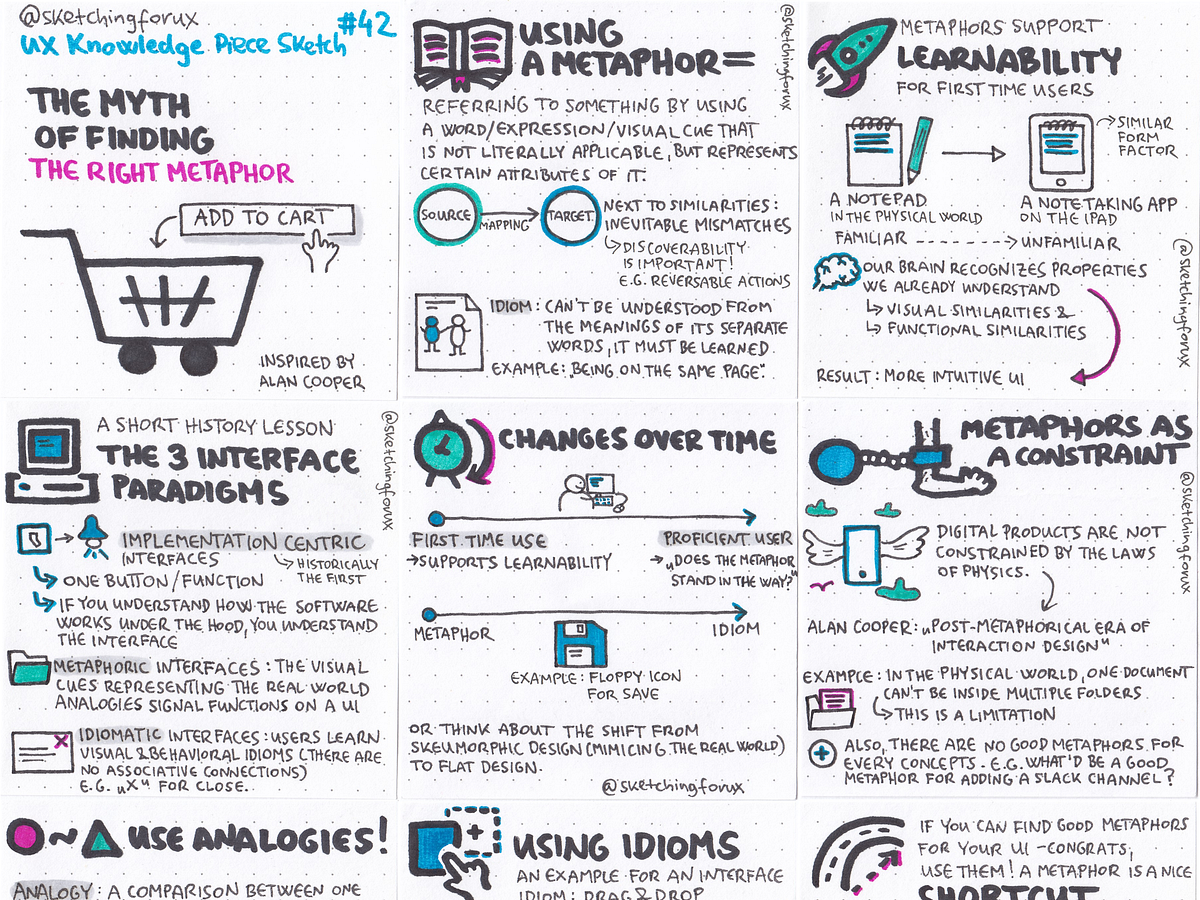 @sketchingforux
#42
UX Knowledge Piece Sketch
THE MYTH
OF FINDING
THE RIGHT METAPHOR
ADD TO CART
INSPIRED BY
ALAN COOPER
USING
A METAPHOR=
@sketchingforux
REFERRING TO SOMETHING BY USING
A WORD/EXPRESSION/VISUAL CUE THAT
IS NOT LITERALLY APPLICABLE, BUT REPRESENTS
CERTAIN ATTRIBUTES OF IT.
SOURCE
MAPPING
TARGET
NEXT TO SIMILARITIES:
INEVITABLE MISMATCHES
DISCOVERABILITY
IS IMPORTANT!
E.G. REVERSABLE ACTIONS
IDIOM: CAN'T BE UNDERSTOOD FROM
THE MEANINGS OF ITS SEPARATE
WORDS, IT MUST BE LEARNED.
EXAMPLE: „BEING ON THE SAME PAGE".
METAPHORS SUPPORT
LEARNABILITY
FOR FIRST TIME USERS
SIMILAR
FORM
FACTOR
A NOTEPAD
IN THE PHYSICAL WORLD
A NOTE TAKING APP
ON THE IPAD
FAMILIAR
UNFAMILIAR
OUR BRAIN RECOGNIZES PROPERTIES
WE ALREADY UNDERSTAND
VISUAL SIMILARITIES &
FUNCTIONAL SIMILARITIES
RESULT: MORE INTUITIVE UI
@sketchingforux
A SHORT HISTORY LESSON
THE 3 INTERFACE
PARADIGMS
@sketchingforux
IMPLEMENTATION CENTRIC
INTERFACES
HISTORICALLY
THE FIRST
ONE BUTTON/FUNCTION
IF YOU UNDERSTAND HOW THE SOFTWARE
WORKS UNDER THE HOOD, YOU UNDERSTAND
THE INTERFACE
METAPHORIC INTERFACES: THE VISUAL
CUES REPRESENTING THE REAL WORLD
ANALOGIES SIGNAL FUNCTIONS ON A UI
IDIOMATIC INTERFACES: USERS LEARN
VISUAL & BEHAVIORAL IDIOMS (THERE ARE
NO ASSOCIATIVE CONNECTIONS)
E.G. „X" FOR CLOSE.
CHANGES OVER TIME
FIRST TIME USE
PROFICIENT USER
→SUPPORTS LEARNABILITY
→„DOES THE METAPHOR
STAND IN THE WAY?"
METAPHOR
IDIOM
EXAMPLE: FLOPPY ICON
FOR SAVE
OR THINK ABOUT THE SHIFT FROM
SKEUMORPHIC DESIGN (MIMICING THE REAL WORLD)
TO FLAT DESIGN.
@sketchingforux
METAPHORS AS
A CONSTRAINT
@sketchingforux
DIGITAL PRODUCTS ARE NOT
CONSTRAINED BY THE LAWS
OF PHYSICS.
ALAN COOPER: „POST-METAPHORICAL ERA OF
INTERACTION DESIGN"
EXAMPLE: IN THE PHYSICAL WORLD, ONE DOCUMENT
CAN'T BE INSIDE MULTIPLE FOLDERS
THIS IS A LIMITATION
+ ALSO, THERE ARE NO GOOD METAPHORS FOR
EVERY CONCEPTS. E.G. WHAT'D BE A GOOD
METAPHOR FOR ADDING A SLACK CHANNEL?
~ USE ANALOGIES!
ANALOGY: A COMPARISON BETWEEN ONE
USING IDIOMS
AN EXAMPLE FOR AN INTERFACE
IDIOM: DRAG & DROP
IF YOU CAN FIND GOOD METAPHORS
FOR YOUR UI - CONGRATS,
USE THEM! A METAPHOR IS A NICE
SHORTCUT